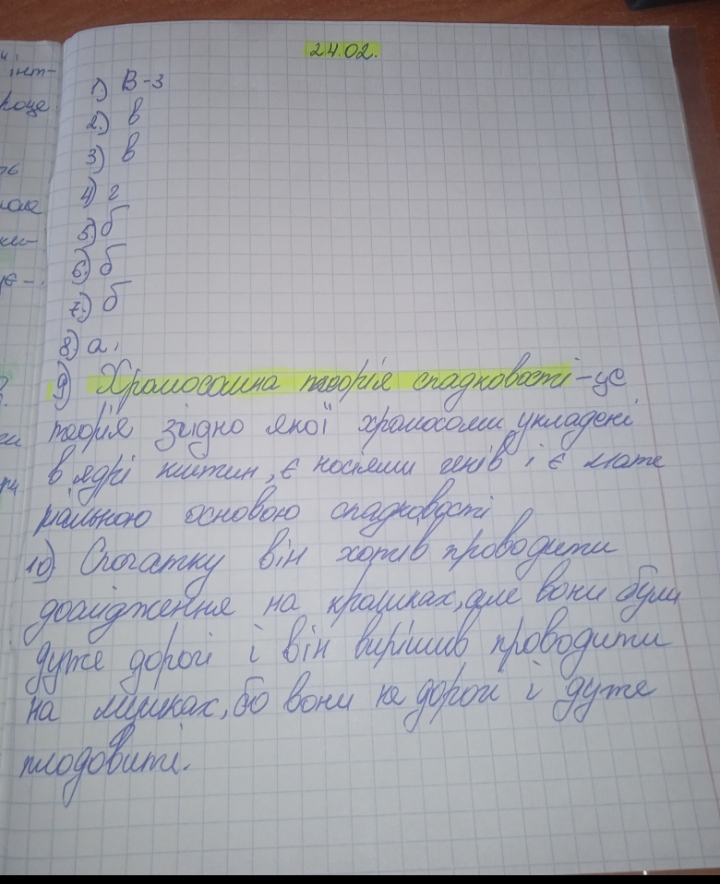 24.02.
1) В-3
2.) в
3) в
4) г
5.) б
6.) б
7.) б
8) а.
9) Хромосомна теорія спадковості - це
теорія згідно якої хромосоми, укладені
в ядрі клітин, є носіями генів і є мате
ріальною основою спадковості
10) Спочатку він хотів проводити
дослідження на кроликах, але вони були
дуже дорогі і він вирішив проводити
на мушках, бо вони не дорогі і дуже
плодовиті.
інт-
роце